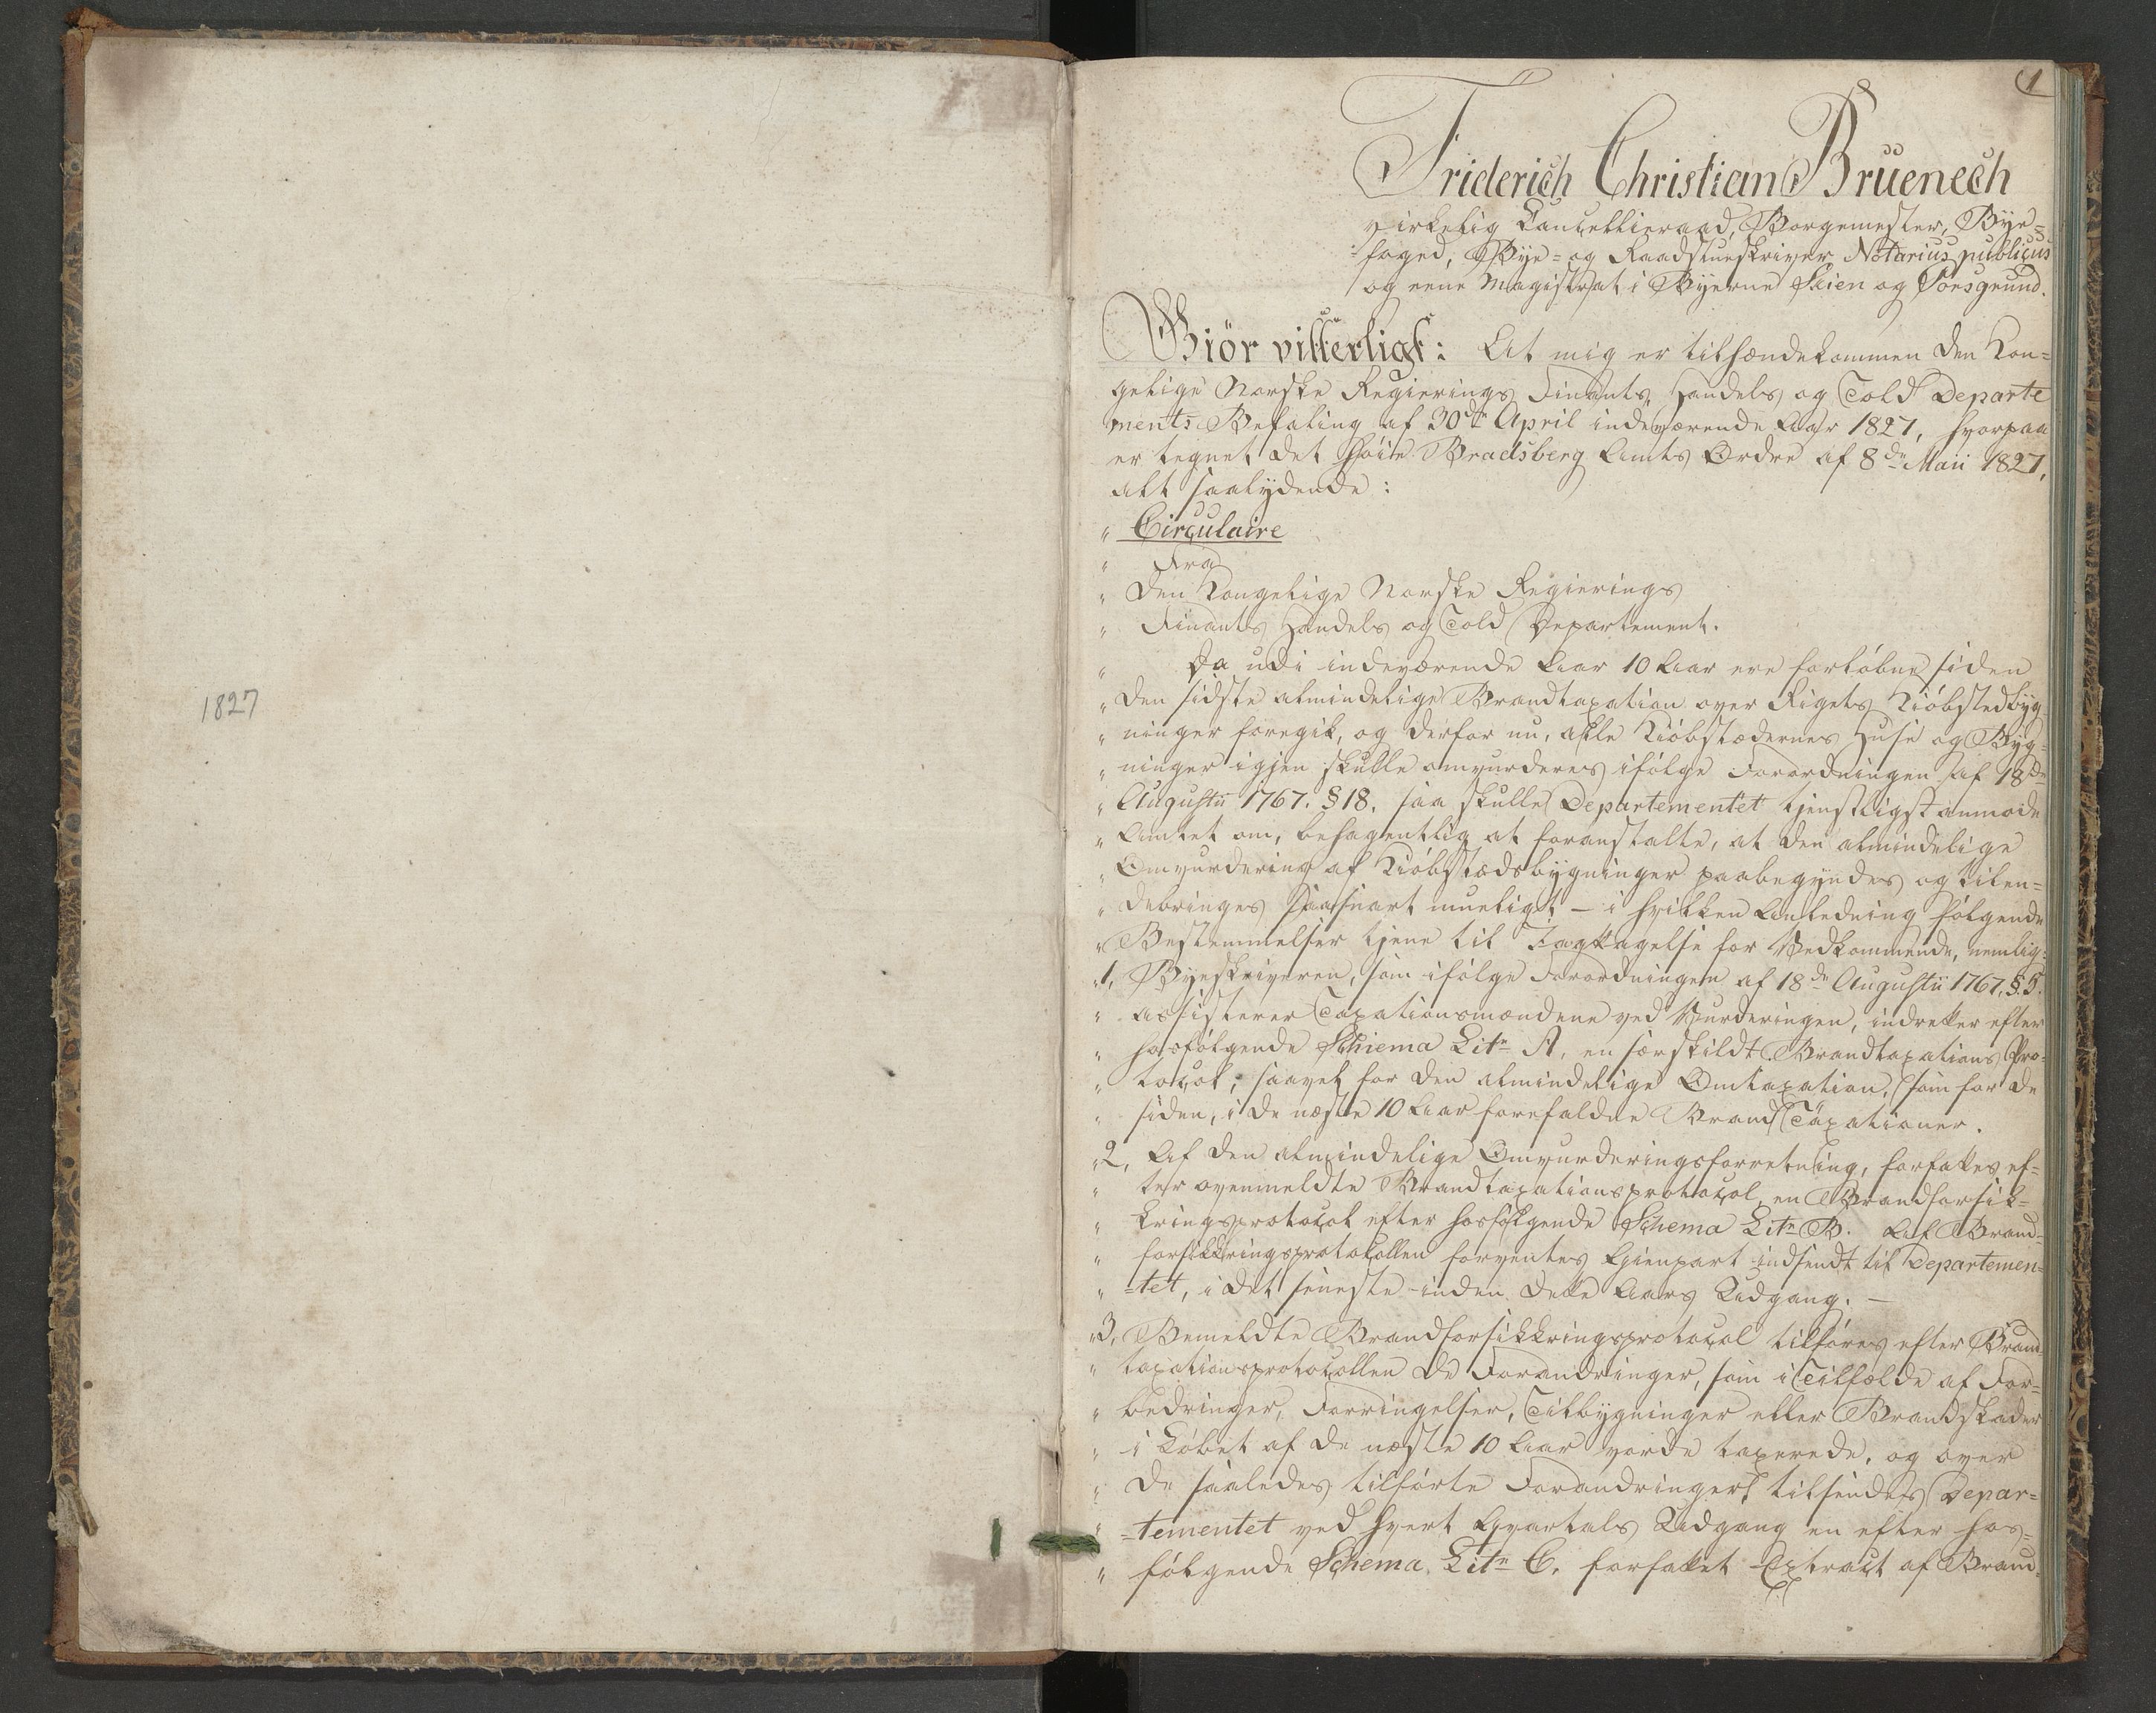 1827
1
Friderich Christian Bruenech
virkelig Cancellieraad, Borgemester, Bye-
foged, Bye- og Raadstueskriver Notarius publicus
og eene Magistrat i Byerne Skien og Porsgrund.
Giör vitterligt: At mig er tilhændekommen den Kon=
gelige Norske Regierings Finants, Handels og Told Departe
ments Befaling af 30de April indeværende Aar 1827, hvorpaa
er tegnet det høie Bradsberg Amts Ordre af 8de Maii 1827,
alt saalydende:
" Circulaire
" Fra
" Den Kongelige Norske Regierings
" Finants Handels og Told Departement.
" Da udi indeværende Aar 10 Aar ere forløbne siden
" den sidste almindelige Brandtaxation over Rigets Kiöbstedbyg=
" ninger foregik, og derfor nu, alle Kiöbstædernes Huse og Byg=
" ninger igjen skulle omvurderes ifølge Forordningen af 18de
" Augustii 1767. § 18. saa skulle Departementet tjenstligst anmode
" Amtet om, behagentlig at foranstalte, at den almindelige
" Omvurdering af Kiöbstædsbygninger paabegyndes og tilen=
" debringes saasnart mueligt – i hvilken Anledning følgende
" Bestemmelser tjene til Iagttagelse for Vedkommende, nemlig:
" 1, Byeskriveren, som ifølge Forordningen af 18de Augustii 1767. §. 5.
" assisterer Taxationsmændene ved Vurderingen, indretter efter
" hosfølgende Schiema Litr A, en særskildt Brandtaxations Pro=
" tocol, saavel for den almindelige Omtaxation, som for de
" siden, i de næste 10 Aar forefaldne Brand Taxationer.
" 2, Af den almindelige Omvurderingsforretning, forfattes ef=
" ter ovenmeldte Brandtaxationsprotocol, en Brandforsik=
" kringsprotocol efter hosfølgende Schema Litr B. Af Brand=
" forsikkringsprotokollen forventes Gienpart indsendt til Departemen=
" =tet, i det seneste inden dette Aars Udgang. –
" 3, Bemeldte Brandforsikkringsprotocol tilføres efter Brand
" taxationsprotocollen de Forandringer, som i Tilfælde af For=
" bedringer, Forringelser, Tilbygninger eller Brandskader
" i Løbet af de næste 10 Aar vorde taxerede, og over
" de saaledes tilførte Forandringer, tilsendes Depar=
" =tementet ved hvert Qvartals Udgang en efter hos=
" følgende Schema Litr C. forfattet Extract af Brand=